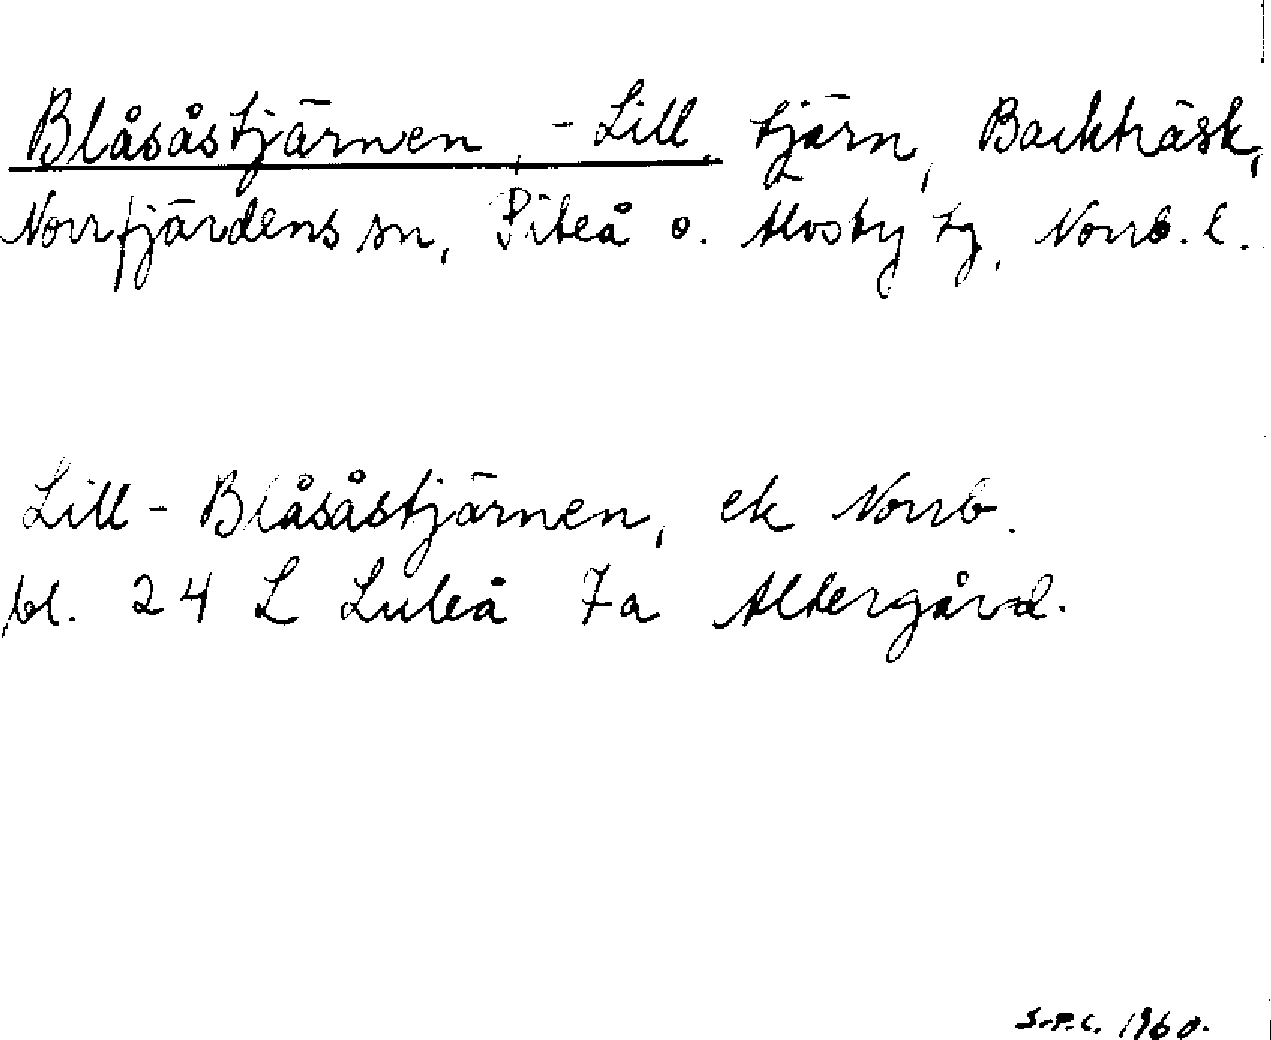 Blåsåstjärnen, -Lill, tjärn, Backträsk,
Norrfjärdens sn, Piteå o. Älvsby tg, Norrb. l.
Lill-Blåsåstjärnen, ek Norrb.
bl. 24 L Luleå 7a Altergård.
S.P.C. 1960.